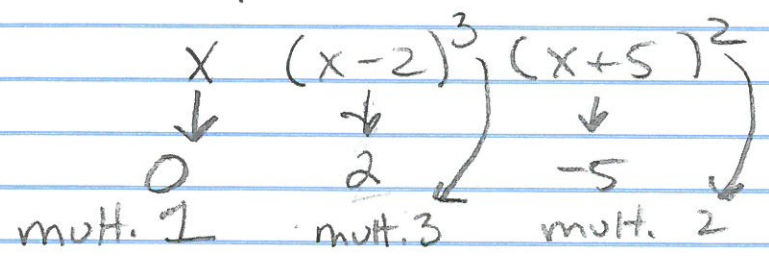 x (x-2)³ (x+5)²
0 2 -5
mult. 1 mult. 3 mult. 2